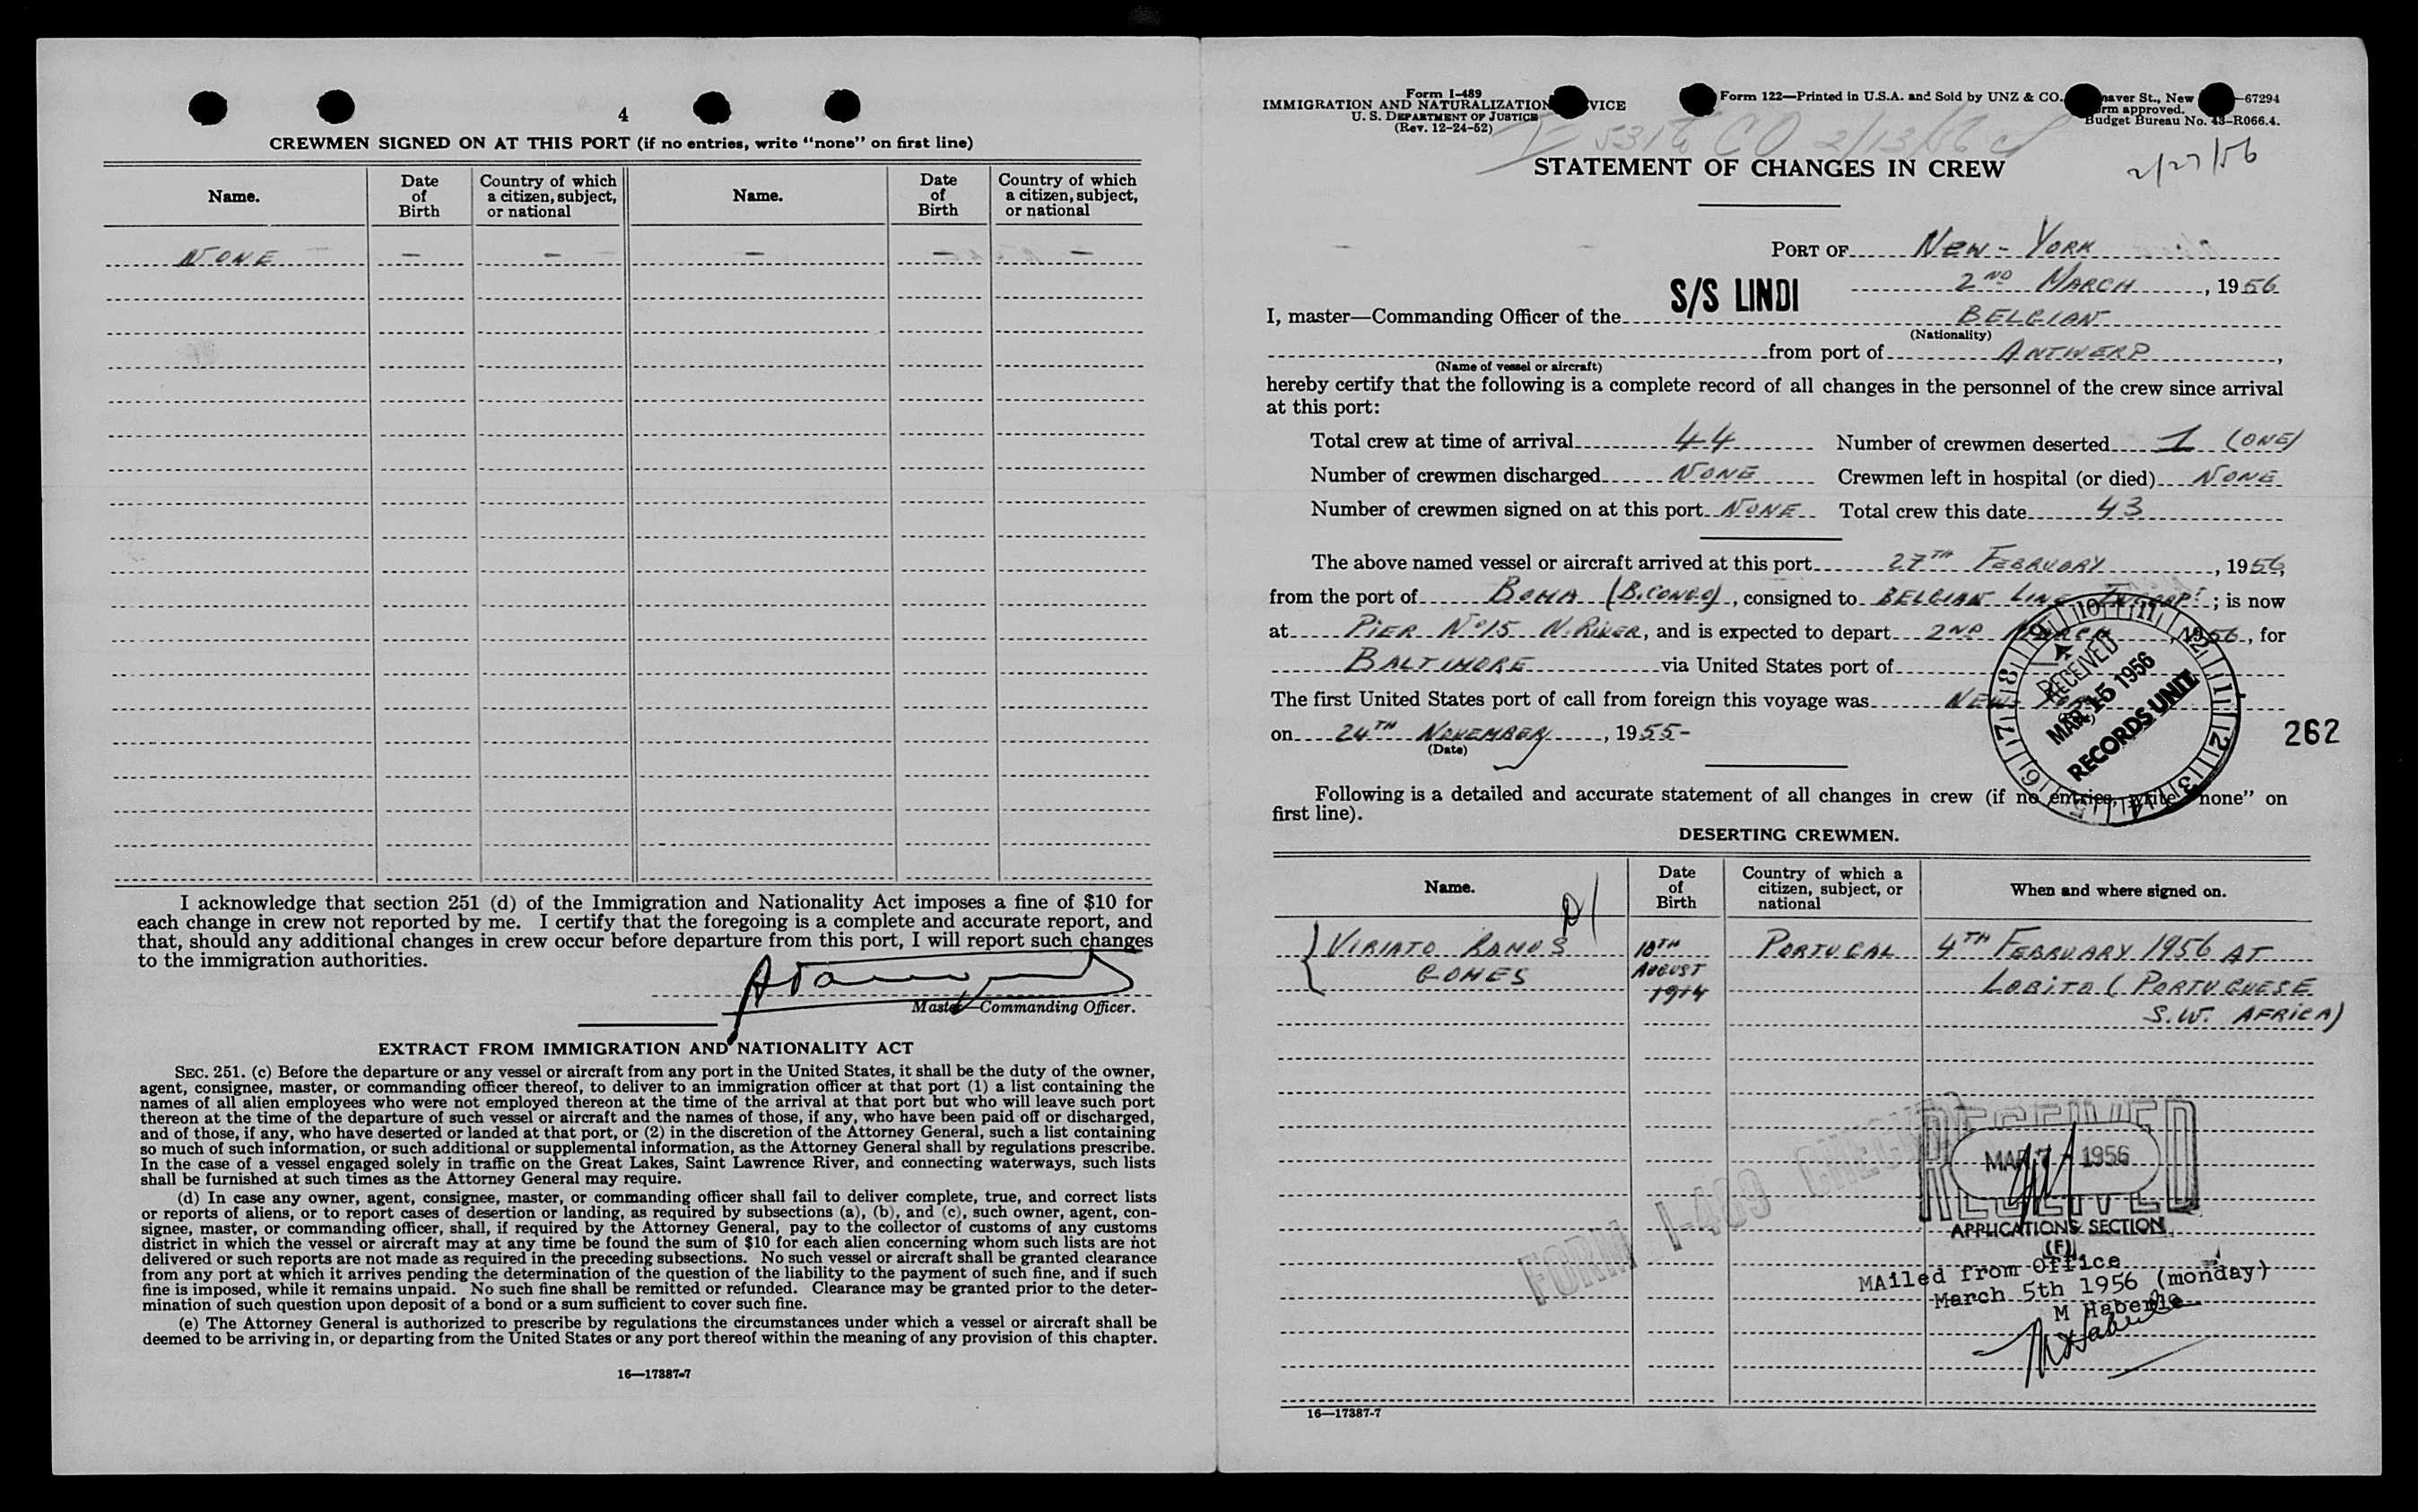 4
CREWMEN SIGNED ON AT THIS PORT (if no entries, write "none" on first line)
Name. Date of Birth Country of which a citizen, subject, or national Name. Date of Birth Country of which a citizen, subject, or national
NONE — — — — —
I acknowledge that section 251 (d) of the Immigration and Nationality Act imposes a fine of $10 for
each change in crew not reported by me. I certify that the foregoing is a complete and accurate report, and
that, should any additional changes in crew occur before departure from this port, I will report such changes
to the immigration authorities.
Master—Commanding Officer.
EXTRACT FROM IMMIGRATION AND NATIONALITY ACT
SEC. 251. (c) Before the departure or any vessel or aircraft from any port in the United States, it shall be the duty of the owner,
agent, consignee, master, or commanding officer thereof, to deliver to an immigration officer at that port (1) a list containing the
names of all alien employees who were not employed thereon at the time of the arrival at that port but who will leave such port
thereon at the time of the departure of such vessel or aircraft and the names of those, if any, who have been paid off or discharged,
and of those, if any, who have deserted or landed at that port, or (2) in the discretion of the Attorney General, such a list containing
so much of such information, or such additional or supplemental information, as the Attorney General shall by regulations prescribe.
In the case of a vessel engaged solely in traffic on the Great Lakes, Saint Lawrence River, and connecting waterways, such lists
shall be furnished at such times as the Attorney General may require.
(d) In case any owner, agent, consignee, master, or commanding officer shall fail to deliver complete, true, and correct lists
or reports of aliens, or to report cases of desertion or landing, as required by subsections (a), (b), and (c), such owner, agent, con-
signee, master, or commanding officer, shall, if required by the Attorney General, pay to the collector of customs of any customs
district in which the vessel or aircraft may at any time be found the sum of $10 for each alien concerning whom such lists are not
delivered or such reports are not made as required in the preceding subsections. No such vessel or aircraft shall be granted clearance
from any port at which it arrives pending the determination of the question of the liability to the payment of such fine, and if such
fine is imposed, while it remains unpaid. No such fine shall be remitted or refunded. Clearance may be granted prior to the deter-
mination of such question upon deposit of a bond or a sum sufficient to cover such fine.
(e) The Attorney General is authorized to prescribe by regulations the circumstances under which a vessel or aircraft shall be
deemed to be arriving in, or departing from the United States or any port thereof within the meaning of any provision of this chapter.
16—17387-7
Form I-489
IMMIGRATION AND NATURALIZATION VICE
U. S. DEPARTMENT OF JUSTICE
(Rev. 12-24-52)
Form 122—Printed in U.S.A. and Sold by UNZ & CO. aver St., New —67294
rm approved.
Budget Bureau No. 43-R066.4.
2/13/56
2/27/56
STATEMENT OF CHANGES IN CREW
PORT OF NEW-YORK
2ND MARCH, 1956
I, master—Commanding Officer of the S/S LINDI BELGIAN
(Nationality)
from port of ANTWERP,
(Name of vessel or aircraft)
hereby certify that the following is a complete record of all changes in the personnel of the crew since arrival
at this port:
Total crew at time of arrival 44 Number of crewmen deserted 1 (ONE)
Number of crewmen discharged NONE Crewmen left in hospital (or died) NONE
Number of crewmen signed on at this port NONE Total crew this date 43
The above named vessel or aircraft arrived at this port 27TH FEBRUARY, 1956,
from the port of BOMA (B.CONGO), consigned to BELGIAN LINE ; is now
at PIER No15 N.RIVER, and is expected to depart 2ND MARCH, 1956, for
BALTIMORE via United States port of
The first United States port of call from foreign this voyage was NEW-YORK
on 24TH NOVEMBER, 1955-
(Date)
10 11 12 1 2 3 4 5 6 7 8 9
RECEIVED
MAR 15 1956
RECORDS UNIT
262
Following is a detailed and accurate statement of all changes in crew (if no entries, write "none" on
first line).
DESERTING CREWMEN.
Name. Date of Birth Country of which a citizen, subject, or national When and where signed on.
VIRIATO RAMOS 10TH PORTUGAL 4TH FEBRUARY 1956 AT
GOMES AUGUST LOBITO (PORTUGUESE
1914 S.W. AFRICA)
FORM I-489 CHECKED
RECEIVED
MAR 7 - 1956
APPLICATIONS SECTION
(F)
MAiled from Office
March 5th 1956 (monday)
M Haberle
M Haberle
16—17387-7